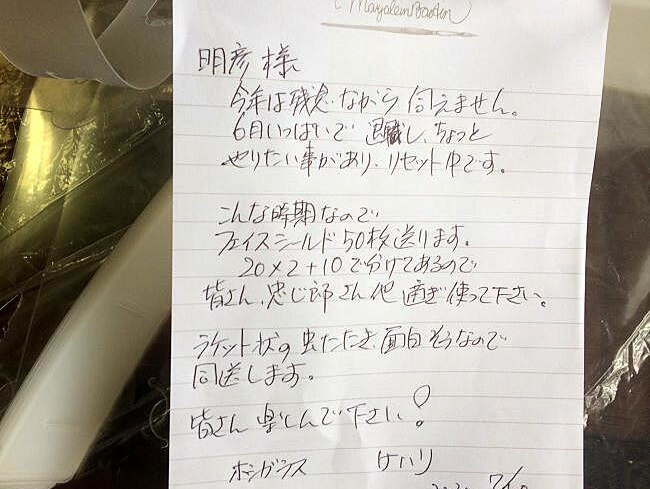 明彦 様
今年は残念ながら 伺えません。
6月いっぱいで 退職し、ちょっと
やりたい事があり、リセット中です。
こんな時期なので
フェイスシールド 50枚送ります。
20×2+10で分けてあるので
皆さん、忠じ郎さん他 適ぎ使って下さい。
ラケット状の虫たたき、面白そうなので
同送します。
皆さん 楽しんで下さい!